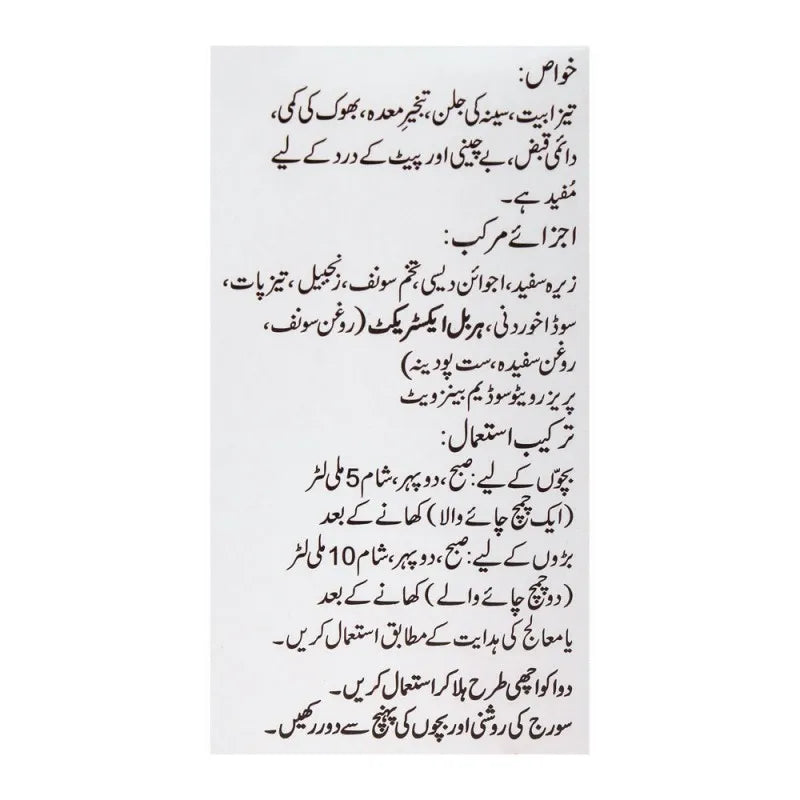 خواص:
تیزابیت، سینہ کی جلن، تبخیرِ معدہ، بھوک کی کمی،
دائمی قبض، بے چینی اور پیٹ کے درد کے لیے
مُفید ہے۔
اجزائے مرکب:
زیرہ سفید، اجوائن دیسی، تخم سونف، زنجبیل، تیزپات،
سوڈا خوردنی، ہربل ایکسٹریکٹ (روغن سونف،
روغن سفیدہ، ست پودینہ)
پریزرویٹو سوڈیم بینزویٹ
ترکیب استعمال:
بچوّں کے لیے: صبح، دوپہر، شام 5 ملی لٹر
(ایک چمچ چائے والا) کھانے کے بعد
بڑوں کے لیے: صبح، دوپہر، شام 10 ملی لٹر
(دو چمچ چائے والے) کھانے کے بعد
یا معالج کی ہدایت کے مطابق استعمال کریں۔
دوا کو اچھی طرح ہلا کر استعمال کریں۔
سورج کی روشنی اور بچوں کی پہنچ سے دور رکھیں۔